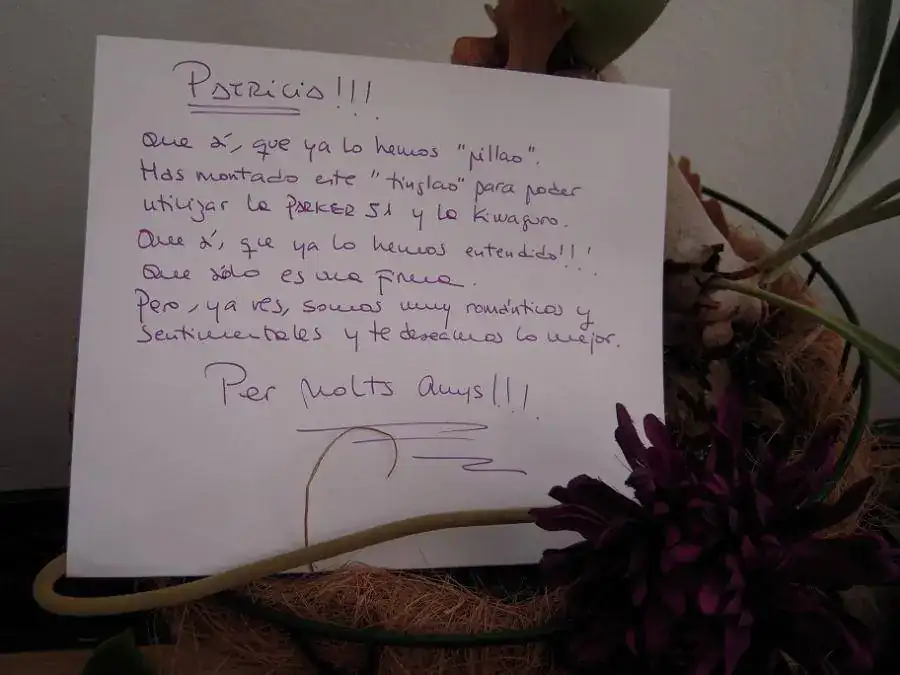 Patricia!!!
Que sí, que ya lo hemos "pillao".
Has montado este "tinglao" para poder
utilizar la PARKER 51 y la Kiwaguro.
Que sí, que ya lo hemos entendido!!!
Que sólo es una firma.
Pero, ya ves, somos muy románticos y
sentimentales y te deseamos lo mejor.
Per molts anys!!!